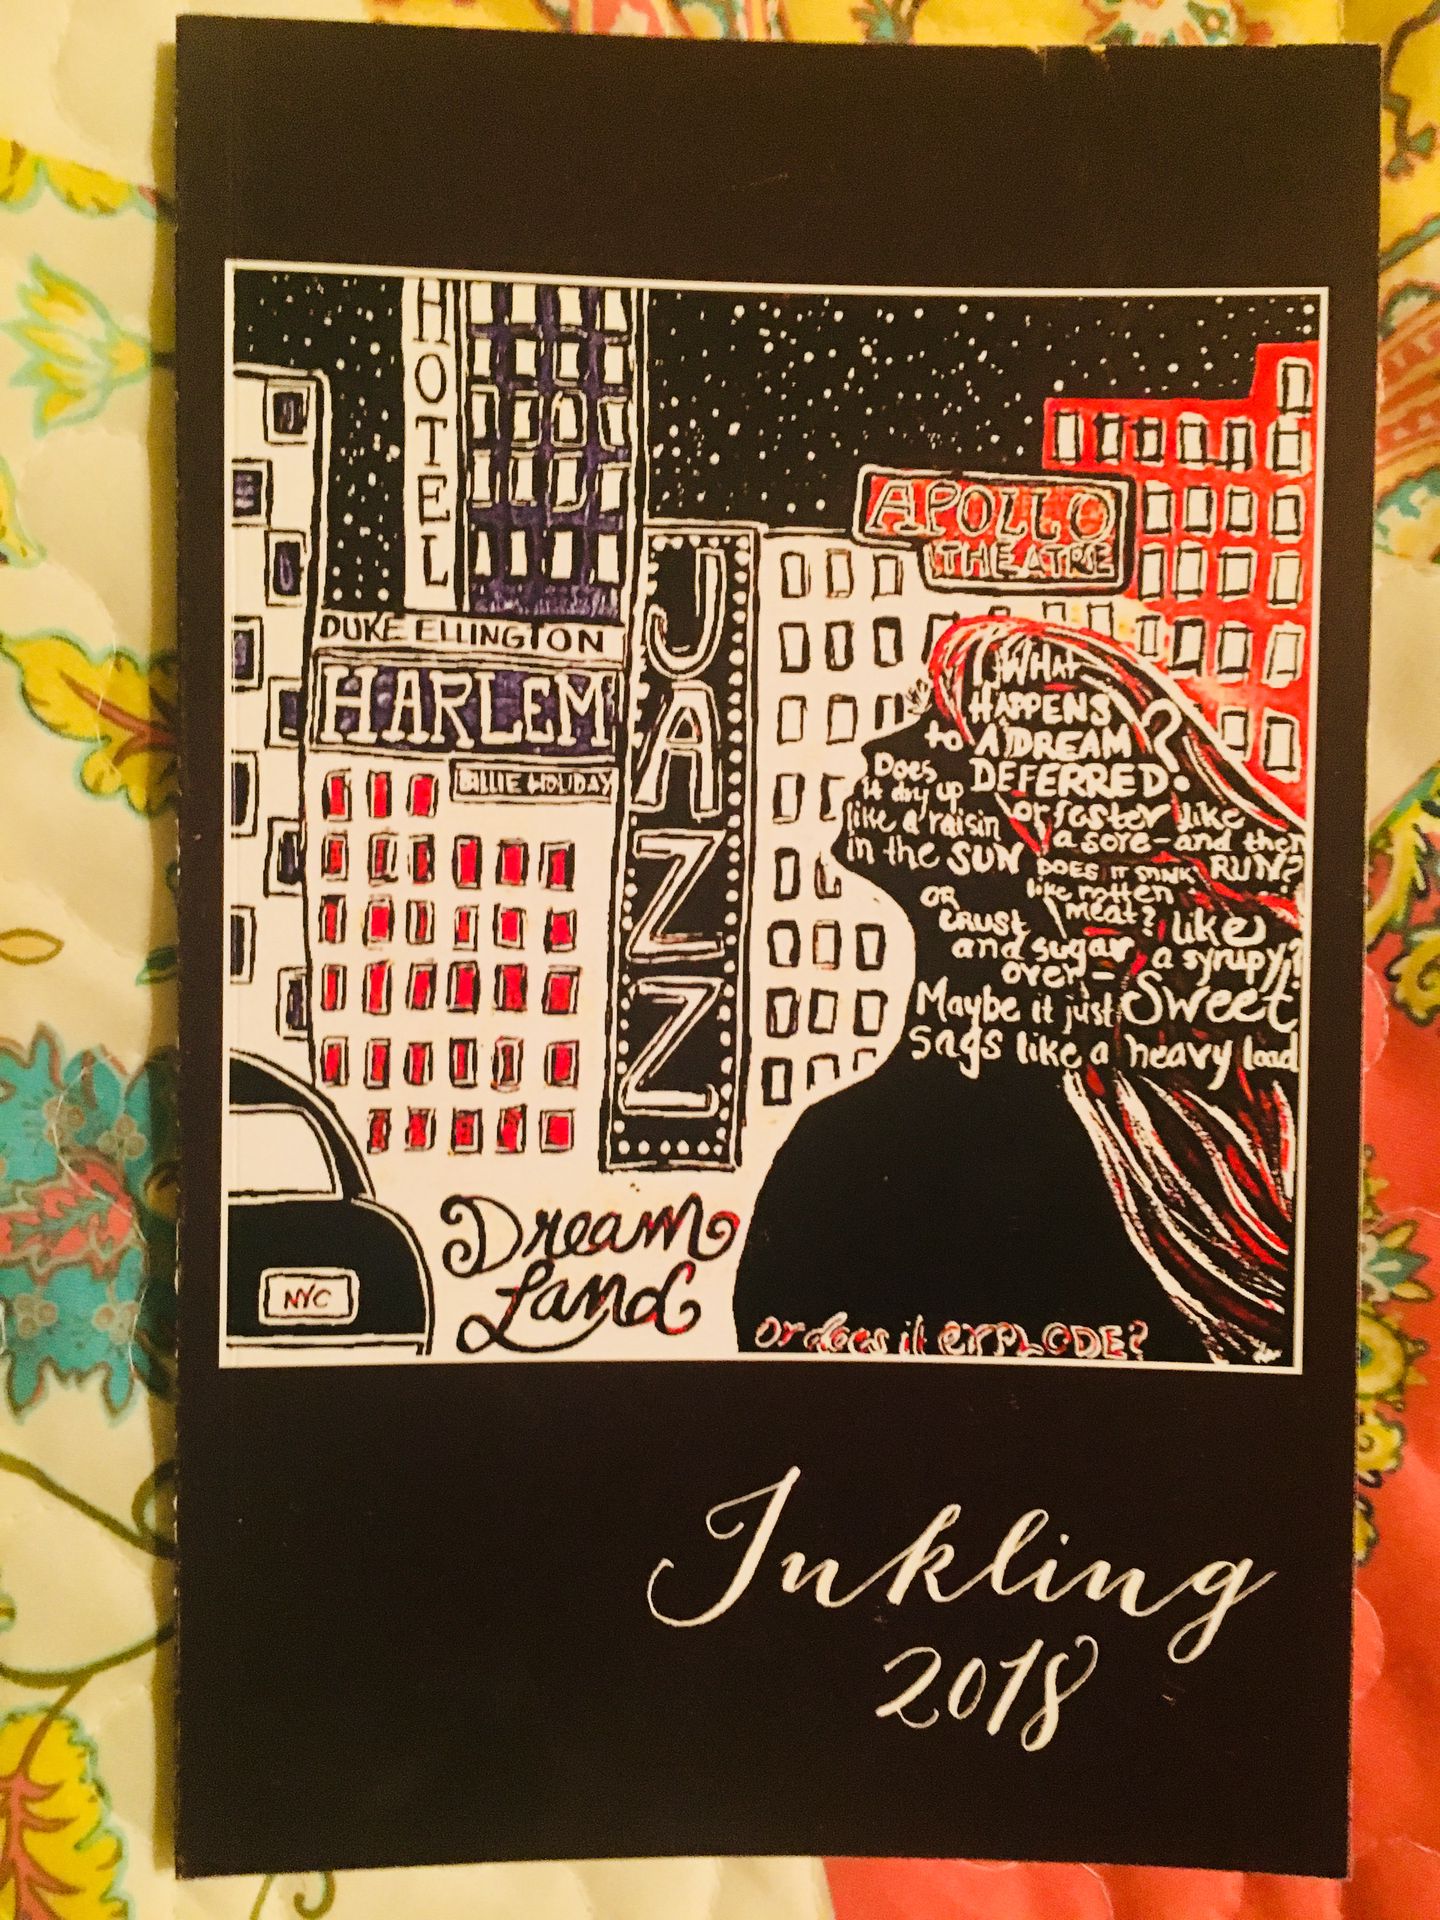 HOTEL
DUKE ELLINGTON
HARLEM
BILLIE HOLIDAY
JAZZ
APOLLO
THEATRE
WHAT
HAPPENS
to A DREAM
DEFERRED?
Does
it dry up
like a raisin
in the SUN
or fester like
a sore—and then
RUN?
DOES IT STINK
like rotten
meat?
OR
CRUST
and sugar
over—
like
a syrupy
Sweet?
Maybe it just
sags like a heavy load
Or does it EXPLODE?
Dream
Land
NYC
Inkling
2018